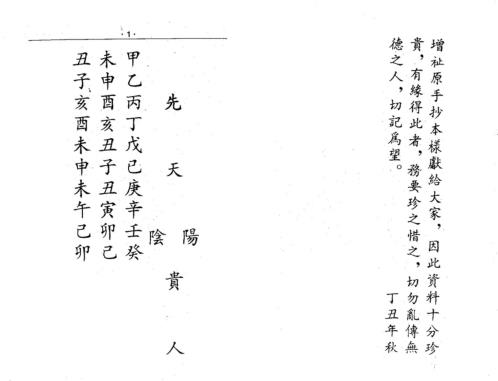 增祉原手抄本樣獻給大家，因此資料十分珍
貴，有緣得此者，務要珍之惜之，切勿亂傳無
德之人，切記爲望。
丁丑年秋
·1·
先天陰陽貴人
甲乙丙丁戊己庚辛壬癸
未申酉亥丑子丑寅卯己
丑子亥酉未申未午己卯